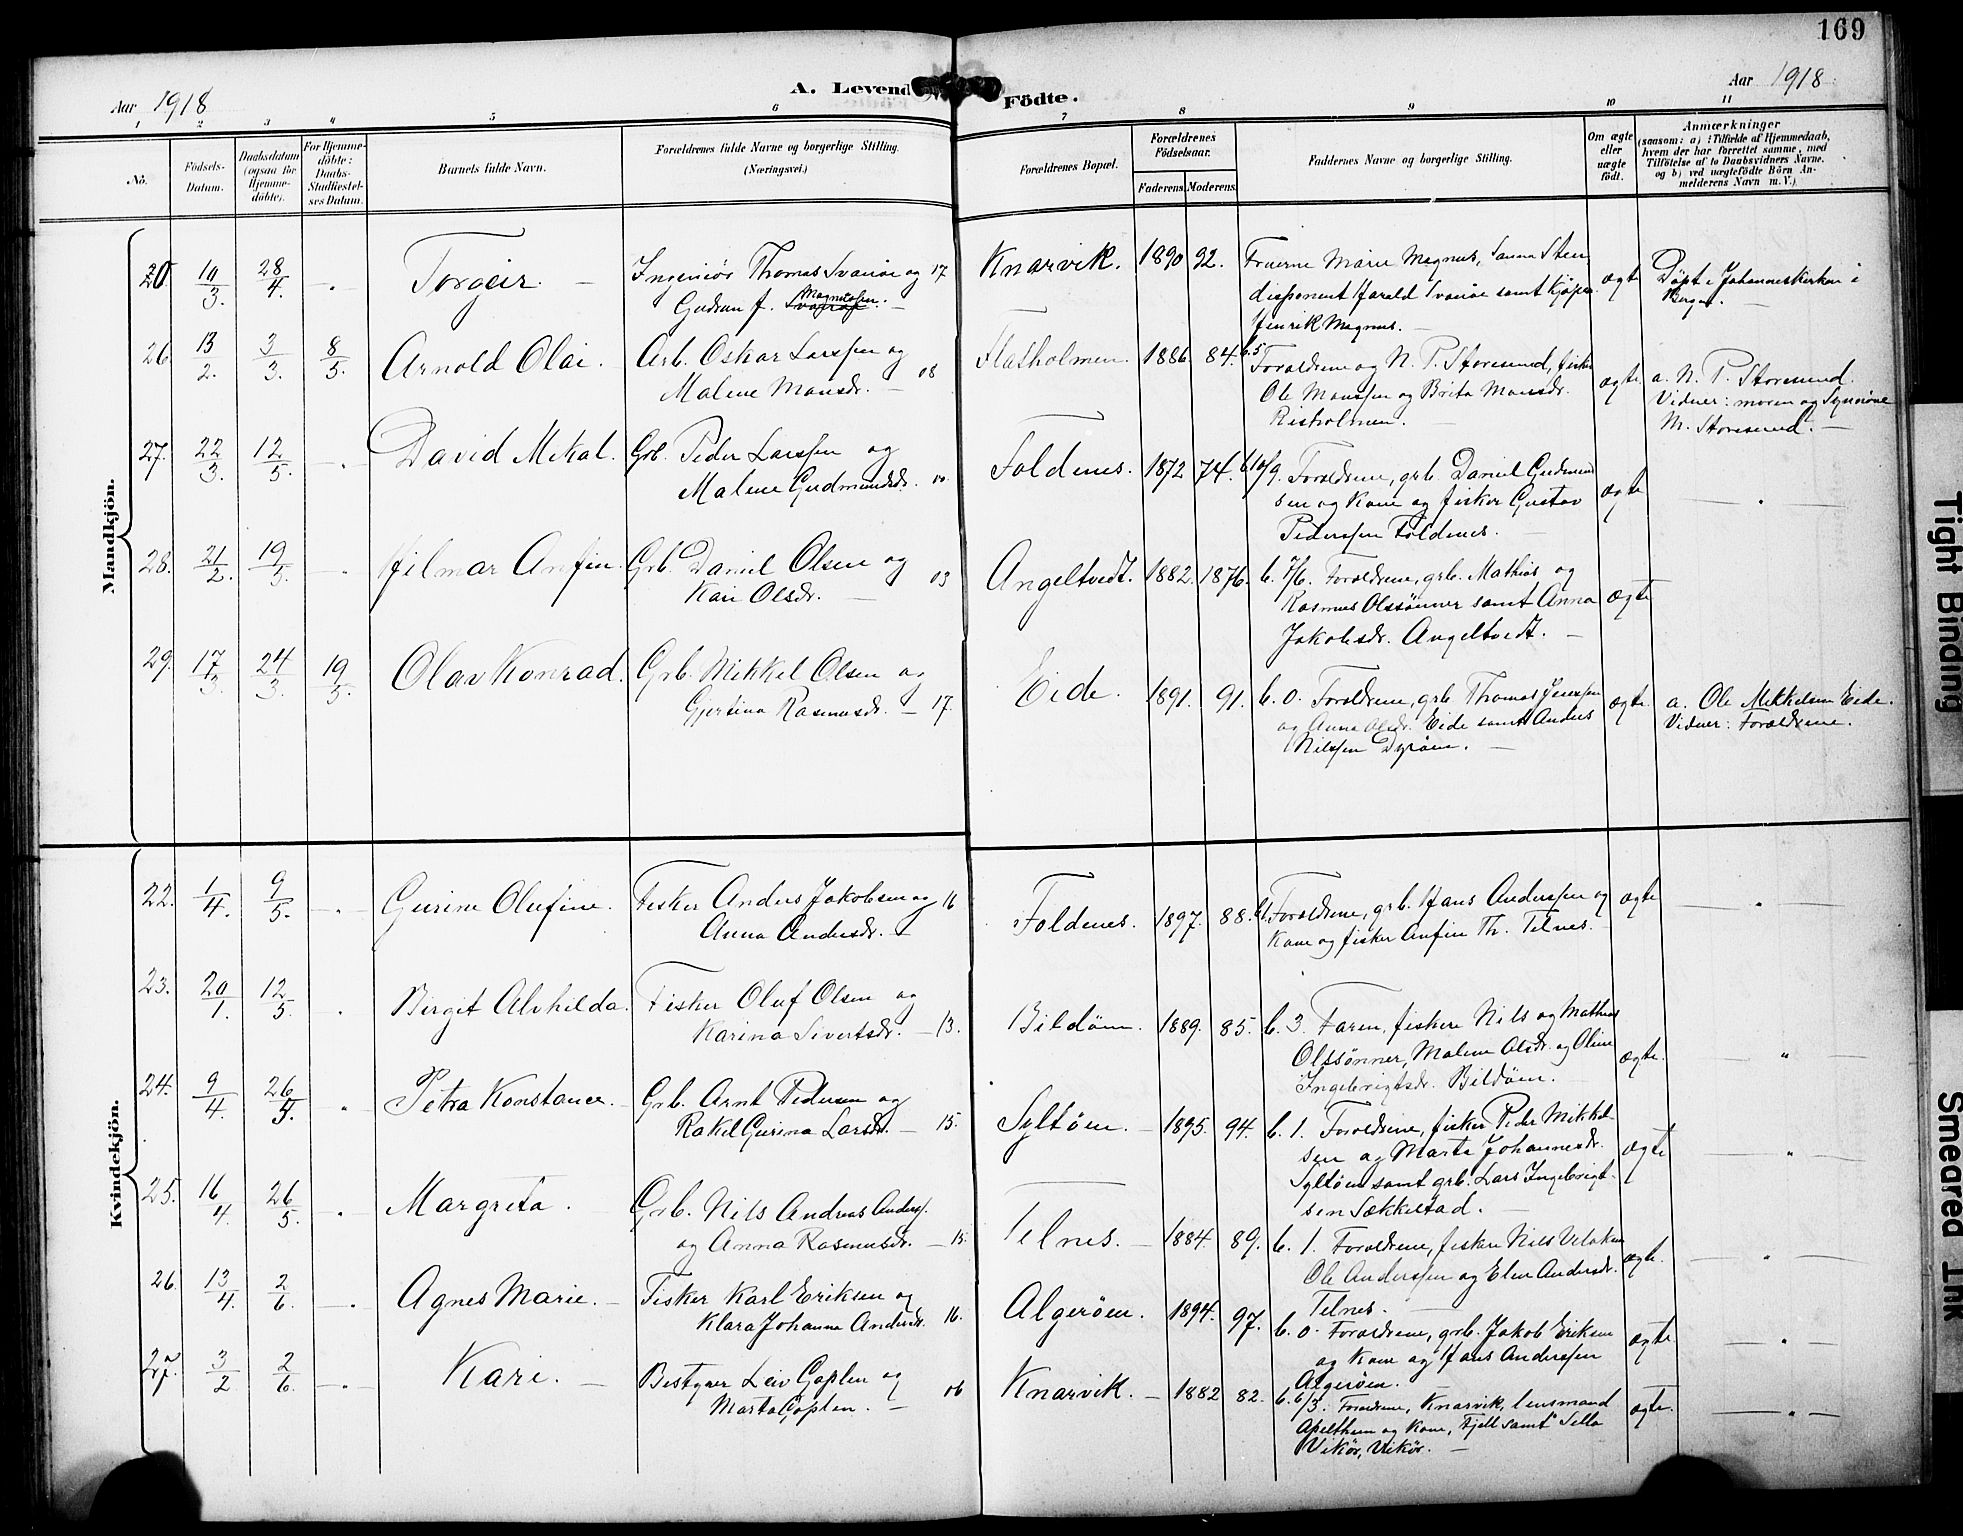 169
Aar 1918
A. Levende Födte.
Aar 1918
1 2 3 4 5 6 7 8 9 10 11
No.
Födsels-Datum.
Daabsdatum (ogsaa for Hjemme-döbte).
For Hjemme-döbte: Daabs-Stadfæstelses Datum.
Barnets fulde Navn.
Forældrenes fulde Navne og borgerlige Stilling.
(Næringsvei.)
Forældrenes Bopæl.
Forældrenes Födselsaar.
Faderens. Moderens.
Faddernes Navne og borgerlige Stilling.
Om ægte eller uægte födt.
Anmærkninger
(saasom: a) i Tilfælde af Hjemmedaab,
hvem der har forrettet samme, med
Tilföielse af to Daabsvidners Navne.
og b) ved uægtefödte Börn An-
melderens Navn m. V.)
Mandkjön.
20. 10/3. 28/4. - Torgeir. Ingeniör Thomas Svanöe og 17
Gudrun f. Magnusen.
Knarvik. 1890 92. Fruerne Marie Magnus, Sanna Steen
disponent Harald Svanöe samt kjöpm.
Henrik Magnus.
ægte
Döpt i Johanneskirken i
Bergen.
26. 13/2. 3/3. 8/5. Arnold Olai. Arb. Oskar Larssen og
Malene Monsdr. 08
Flatholmen. 1886. 84. b.5 Forældrene og N. P. Storesund, fisker
Ole Monssen og Brita Monsdr.
Risholmen.
ægte.
a. N. P. Storesund.
Vidner: moren og Synnöve
M. Storesund.
27. 22/3. 12/5. David Mikal. Grb. Peder Larssen og
Malene Gudmundsdr. 00.
Foldenes. 1872 74. b.10/9. Forældrene, grb. Daniel Gudmund
sen og kone og fisker Gustav
Pederssen Foldenes.
ægte
28. 21/2. 19/5. Hilmar Anfin. Grb. Daniel Olsen og 03
Kari Olsdr.
Angeltvedt. 1882. 1876. b. 7/6. Forældrene, grb. Mathias og
Rasmus Olssönner samt Anna
Jakobsdr. Angeltvedt.
ægte
29. 17/3. 24/3. 19/5. Olav Konrad. Grb. Mikkel Olsen og
Gjertina Rasmusdr. 17.
Eide. 1891. 91. b. 0. Forældrene, grb. Thomas Jenssen
og Anna Olsdr. Eide samt Anders
Nilssen Dyröen.
ægte
a. Ole Mikkelsen Eide.
Vidner: Forældrene.
Kvindekjön.
22. 1/4. 9/5. Gurine Olufine. Fisker Anders Jakobsen og 16
Anna Andersdr.
Foldenes. 1897. 88. b1. Forældrene, grb. Hans Anderssen og
kone og fisker Anfin Th. Telnes.
ægte
23. 20/1. 12/5. Birgit Alvhilda. Fisker Oluf Olsen og
Karina Sivertsdr. 13.
Bildöen. 1889. 85. b. 3. Faren, fiskere Nils og Mathias
Olssönner, Malene Olsdr. og Oline
Ingebrigtsdr. Bildöen.
ægte.
24. 9/4. 26/5. Petra Konstance. Grb. Arnt Pedersen og
Rakel Gurina Larsdr. 15.
Syltöen. 1895. 94. b. 1. Forældrene, fisker Peder Mikkel-
sen og Marta Johannesdr.
Syltöen samt grb. Lars Ingebrigt-
sen Sækkestad.
ægte
25. 16/4. 26/5. Margreta. Grb. Nils Andreas Anderss.
og Anna Rasmusdr. 15.
Telnes. 1884. 89. b. 1. Forældrene, fisker Nils
Ole Anderssen og Elen Andersdr.
Telnes.
ægte.
26. 13/4. 2/6. Agnes Marie. Fisker Karl Eriksen og
Klara Johanna Andersdr. 16.
Algeröen. 1894. 97. b. 0. Forældrene, grb. Jakob Eriksen
og kone og Hans Anderssen
Algeröen.
ægte
27. 3/2. 2/6. Kari. Bestyrer Leiv Goplen og 06
Marta Goplen.
Knarvik. 1882 82. b. 6/3. Forældrene, Knarvik, lensmand
Apelthun og kone, Fjell samt Sella
Vikör, Vikör.
ægte.
Tight Binding
Smeared Ink